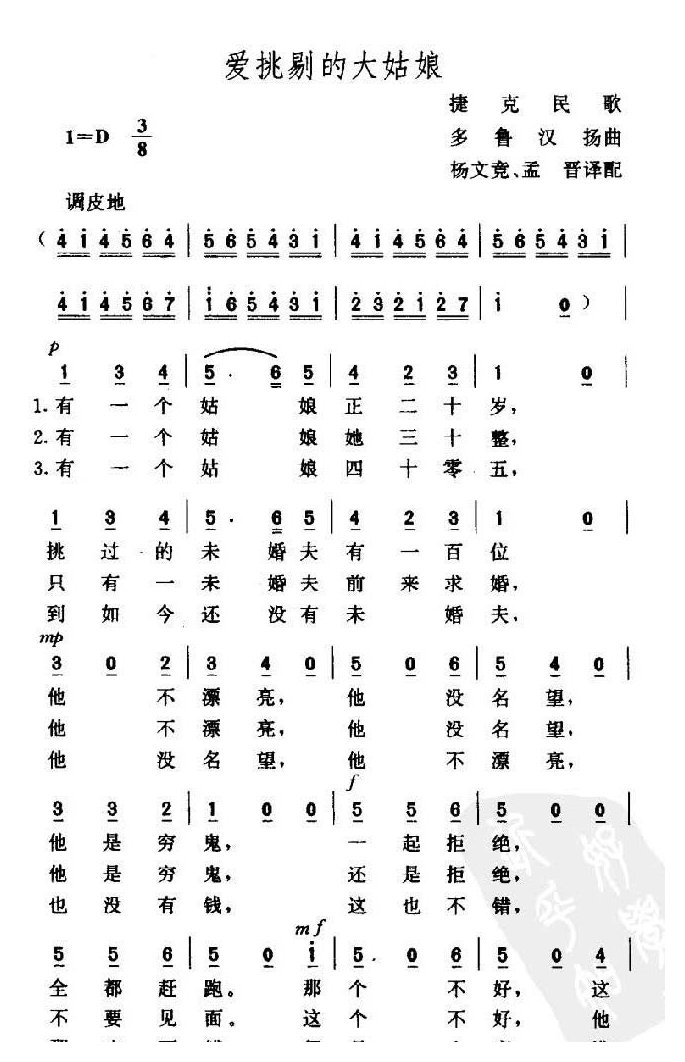 爱挑剔的大姑娘
捷克民歌
1=D 3/8
多鲁汉扬曲
杨文竞、孟 晋译配
调皮地
( 4 1 4 5 6 4 | 5 6 5 4 3 1 | 4 1 4 5 6 4 | 5 6 5 4 3 1 |
4 1 4 5 6 7 | 1 6 5 4 5 1 | 2 3 2 1 2 7 | 1 0 )
p
1 3 4 | 5 . 6 5 | 4 2 3 | 1 0 |
1.有一个姑娘正二十岁，
2.有一个姑娘她三十整，
3.有一个姑娘四十零五，
1 3 4 | 5 . 6 5 | 4 2 3 | 1 0 |
挑过的未婚夫有一百位
只有一未婚夫前来求婚，
到如今还没有未婚夫，
mp
3 0 2 | 3 4 0 | 5 0 6 | 5 4 0 |
他不漂亮，他没名望，
他不漂亮，他没名望，
他没名望，他不漂亮，
f
3 3 2 | 1 0 0 | 5 5 6 | 5 0 0 |
他是穷鬼，一起拒绝，
他是穷鬼，还是拒绝，
也没有钱，这也不错，
mf
5 5 6 | 5 0 1 | 5 . 0 6 | 5 0 4 |
全都赶跑。那个不好，这
不要见面。这个不好，他